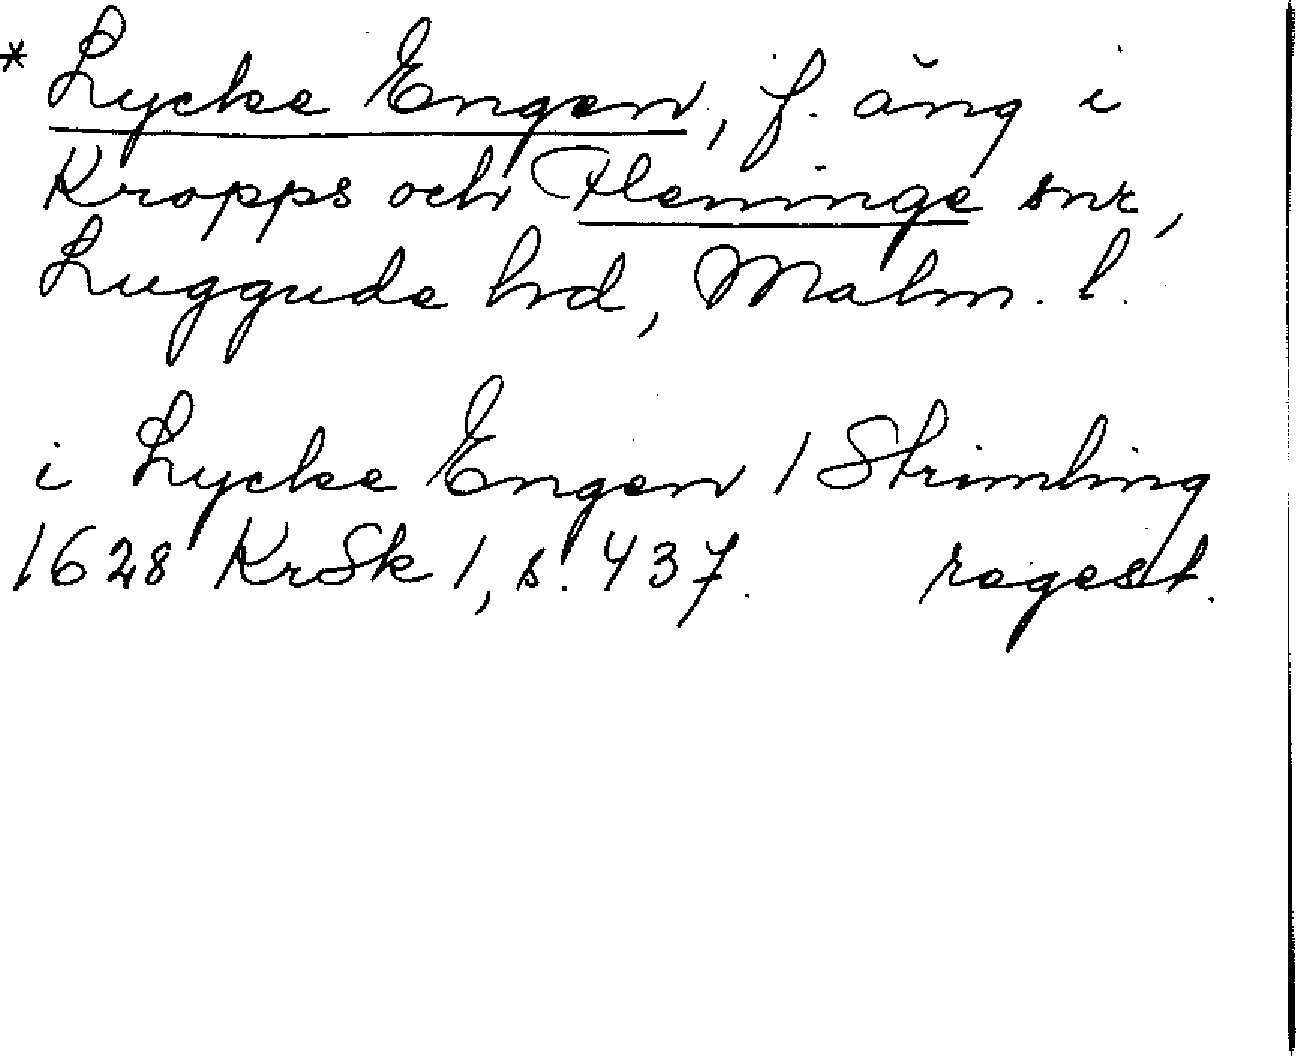 * Lycke Engen, f. äng i
Kropps och Fleninge snr,
Luggude hd, Malm. l.
i Lycke Engen / Strimling
1628 KrSk 1, s. 437. regest.